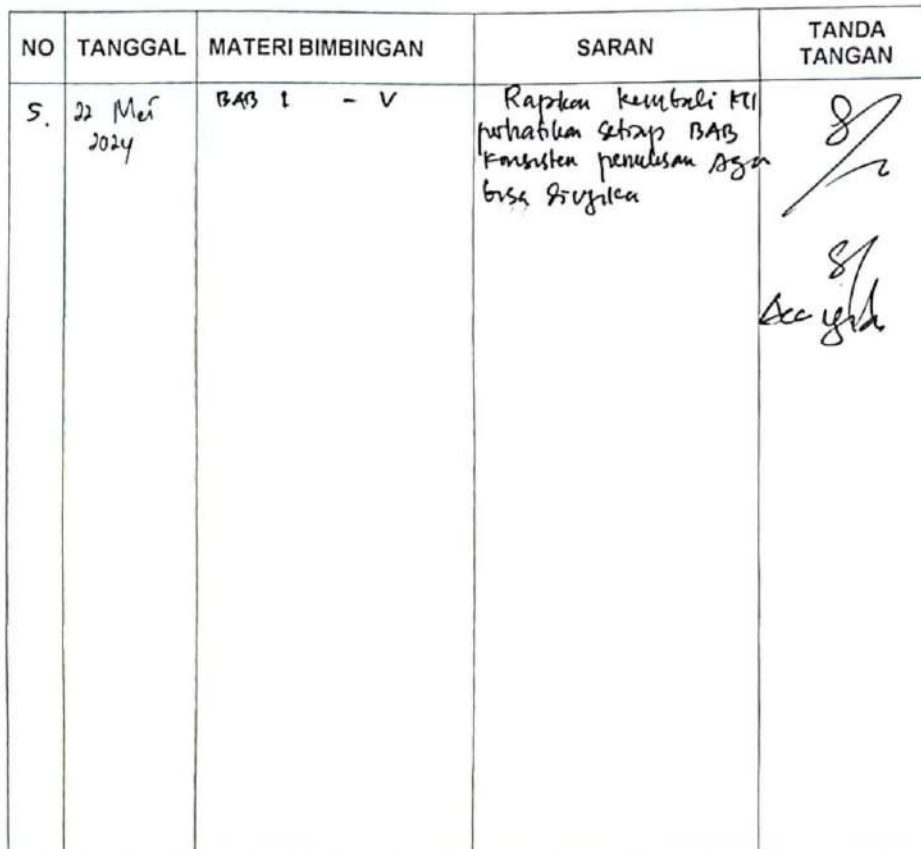 NO TANGGAL MATERI BIMBINGAN SARAN TANDA TANGAN
5. 22 Mei 2024 BAB I - V Rapikan kembali KTI
perhatikan setiap BAB
konsisten penulisan Agar
bisa diujikan
Acc